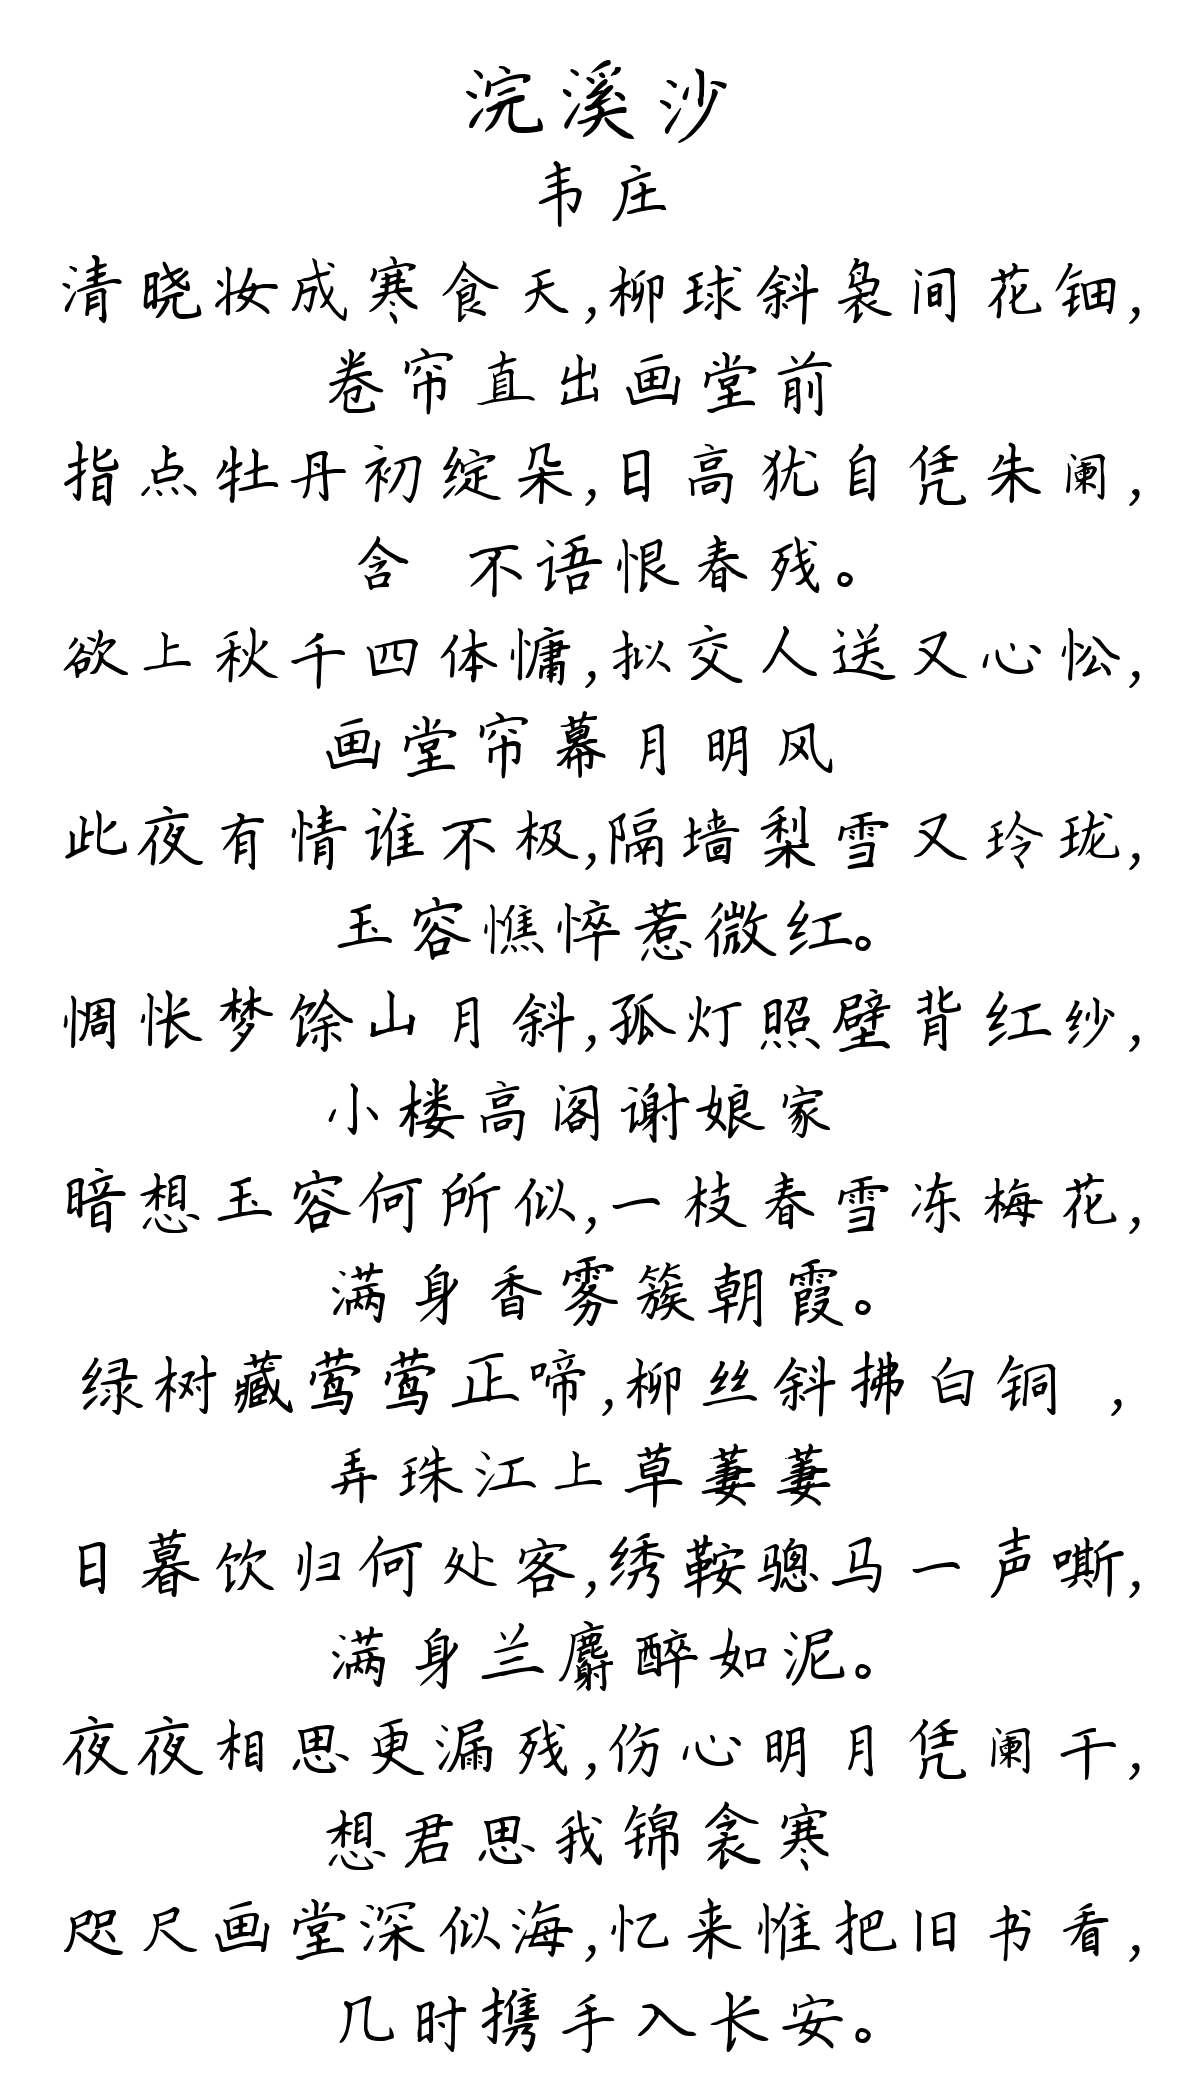 浣溪沙
韦庄
清晓妆成寒食天,柳球斜袅间花钿,
卷帘直出画堂前
指点牡丹初绽朵,日高犹自凭朱阑,
含 不语恨春残。
欲上秋千四体慵,拟交人送又心忪,
画堂帘幕月明风
此夜有情谁不极,隔墙梨雪又玲珑,
玉容憔悴惹微红。
惆怅梦馀山月斜,孤灯照壁背红纱,
小楼高阁谢娘家
暗想玉容何所似,一枝春雪冻梅花,
满身香雾簇朝霞。
绿树藏莺莺正啼,柳丝斜拂白铜 ,
弄珠江上草萋萋
日暮饮归何处客,绣鞍骢马一声嘶,
满身兰麝醉如泥。
夜夜相思更漏残,伤心明月凭阑干,
想君思我锦衾寒
咫尺画堂深似海,忆来惟把旧书看,
几时携手入长安。